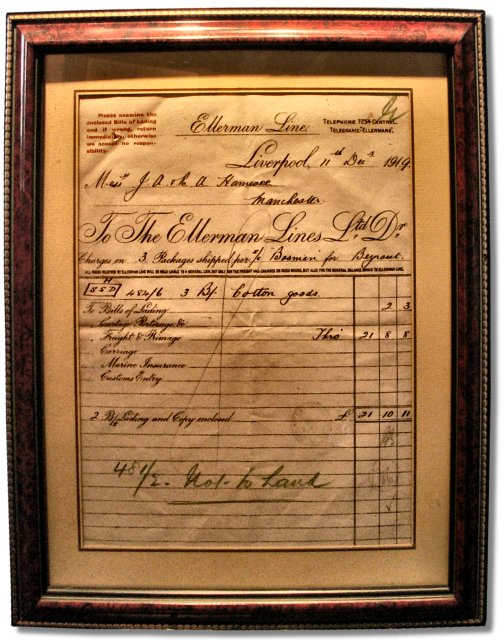 Please examine the
enclosed Bills of Lading
and if wrong, return
immediately, otherwise
we accept no respon-
sibility.
Ellerman Line.
Telephone 7254 Central.
Telegrams "Ellermans".
Liverpool, 11th Decr 1919
Messrs J. A. & A
Manchester
To The Ellerman Lines Ltd Dr
Charges on 3 Packages shipped per s/s Bosnian for Beyrout.
484/6 3 B/s Cotton goods.
To Bills of Lading 2 3
Cartage Porterage &c
Freight & Primage Thro' 21 8 8
Carriage
Marine Insurance
Customs Entry
2 Bs/Lading and Copy enclosed £ 21 10 11
48 1/2 - Not to hand